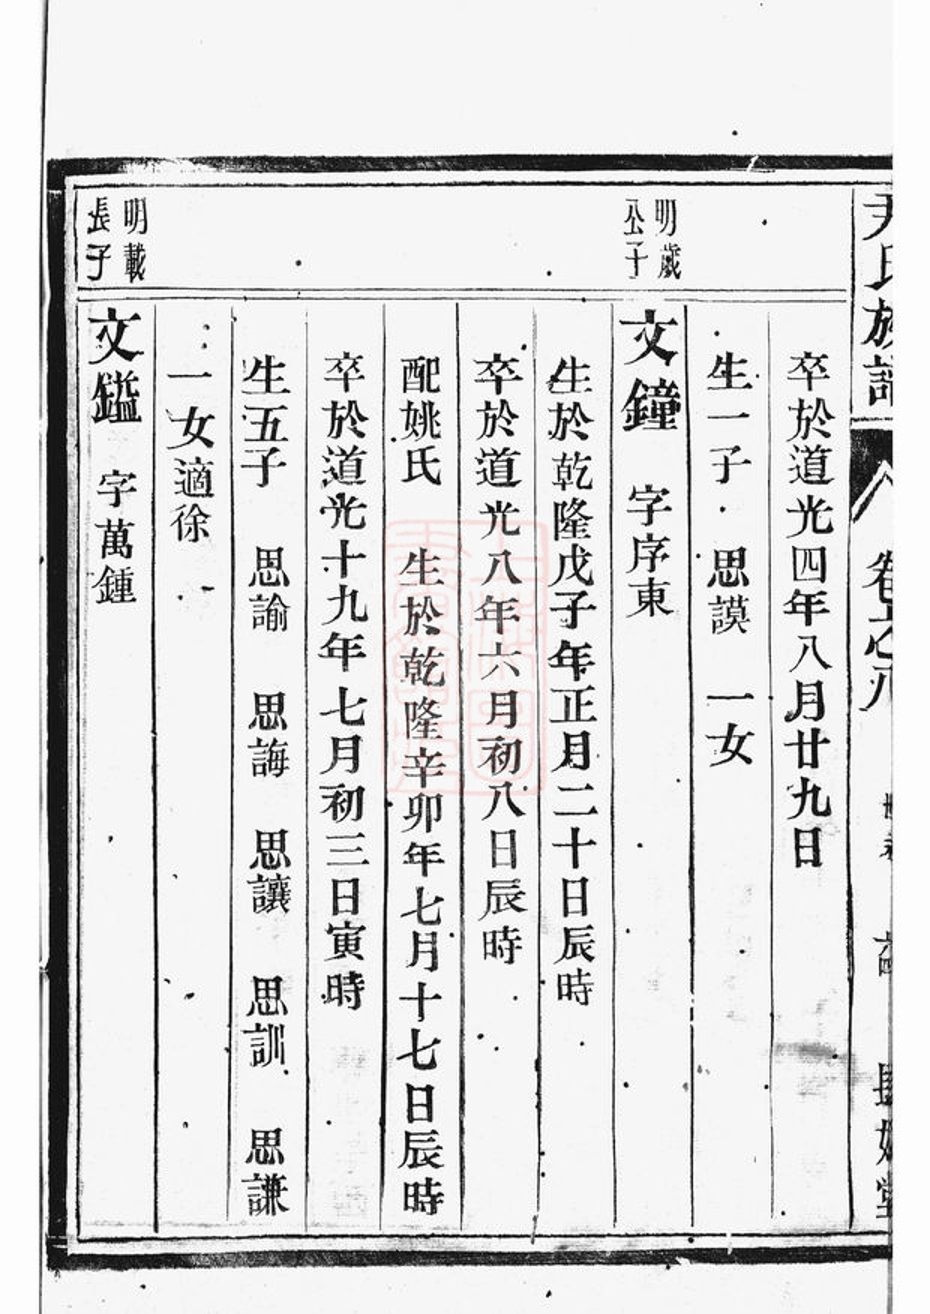 尹氏族譜
卷之八
卒於道光四年八月廿九日
生一子 思謨 一女
明歲
公子
文鐘 字序東
生於乾隆戊子年正月二十日辰時
卒於道光八年六月初八日辰時
配姚氏 生於乾隆辛卯年七月十七日辰時
卒於道光十九年七月初三日寅時
生五子 思諭 思誨 思讓 思訓 思謙
一女適徐
明載
長子
文鎰 字萬鍾